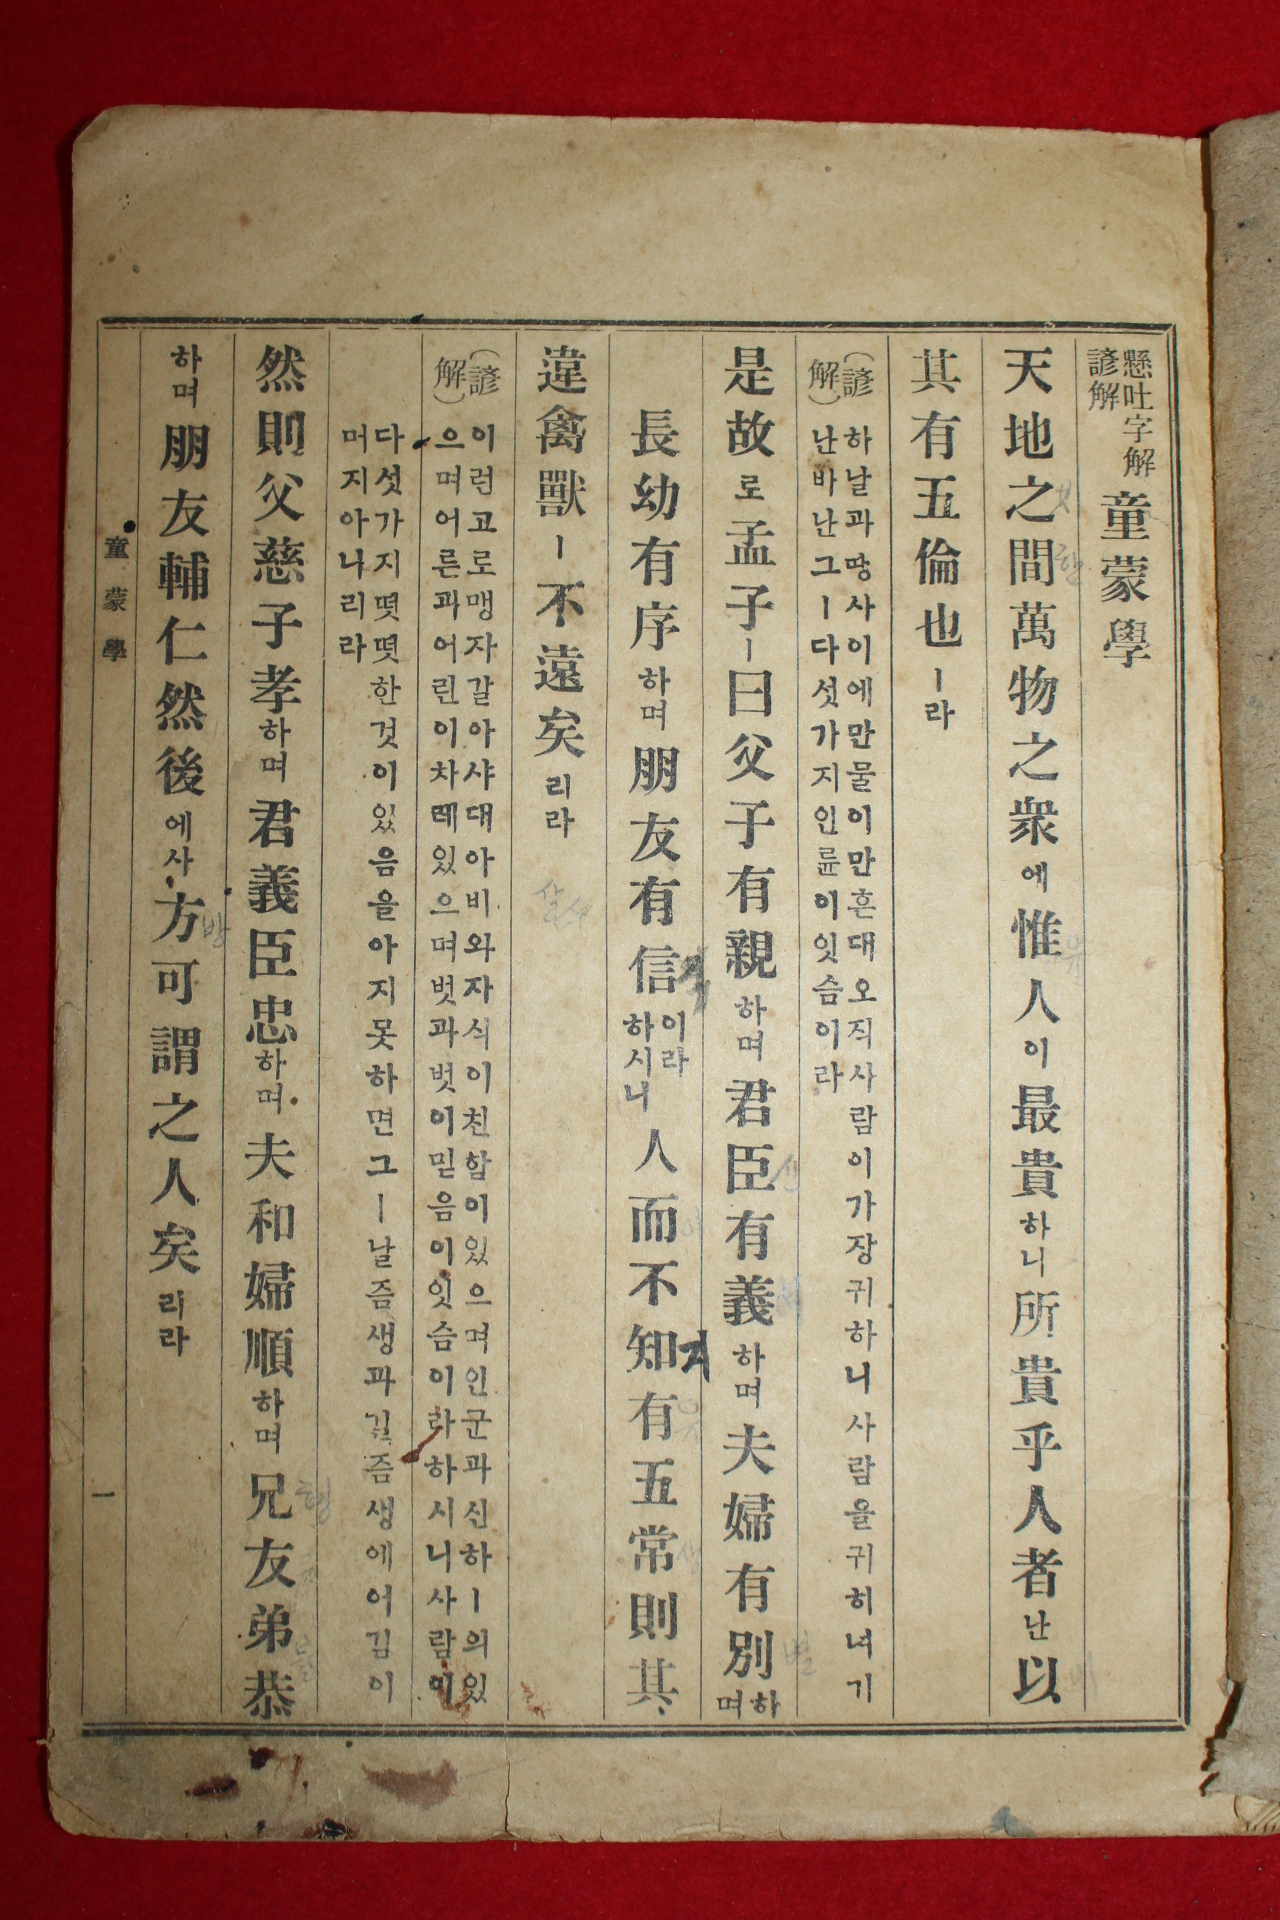 懸吐字解
諺解
童蒙學
天地之間萬物之衆에惟人이最貴하니所貴乎人者난以
其有五倫也ㅣ라
(諺解)
하날과땅사이에만물이만흔대오직사람이가장귀하니사람을귀히녀기
난바난그ㅣ다섯가지인륜이잇슴이라
是故로孟子ㅣ曰父子有親하며君臣有義하며夫婦有別하며
長幼有序하며朋友有信이라하시니人而不知有五常則其
違禽獸ㅣ不遠矣리라
(諺解)
이런고로맹자갈아샤대아비와자식이친함이있으며인군과신하ㅣ의있
으며어른과어린이차례있으며벗과벗이믿음이잇슴이라하시니사람이
다섯가지떳떳한것이있음을아지못하면그ㅣ날즘생과길즘생에어김이
머지아니리라
然則父慈子孝하며君義臣忠하며夫和婦順하며兄友弟恭
하며朋友輔仁然後에사方可謂之人矣리라
童蒙學
一